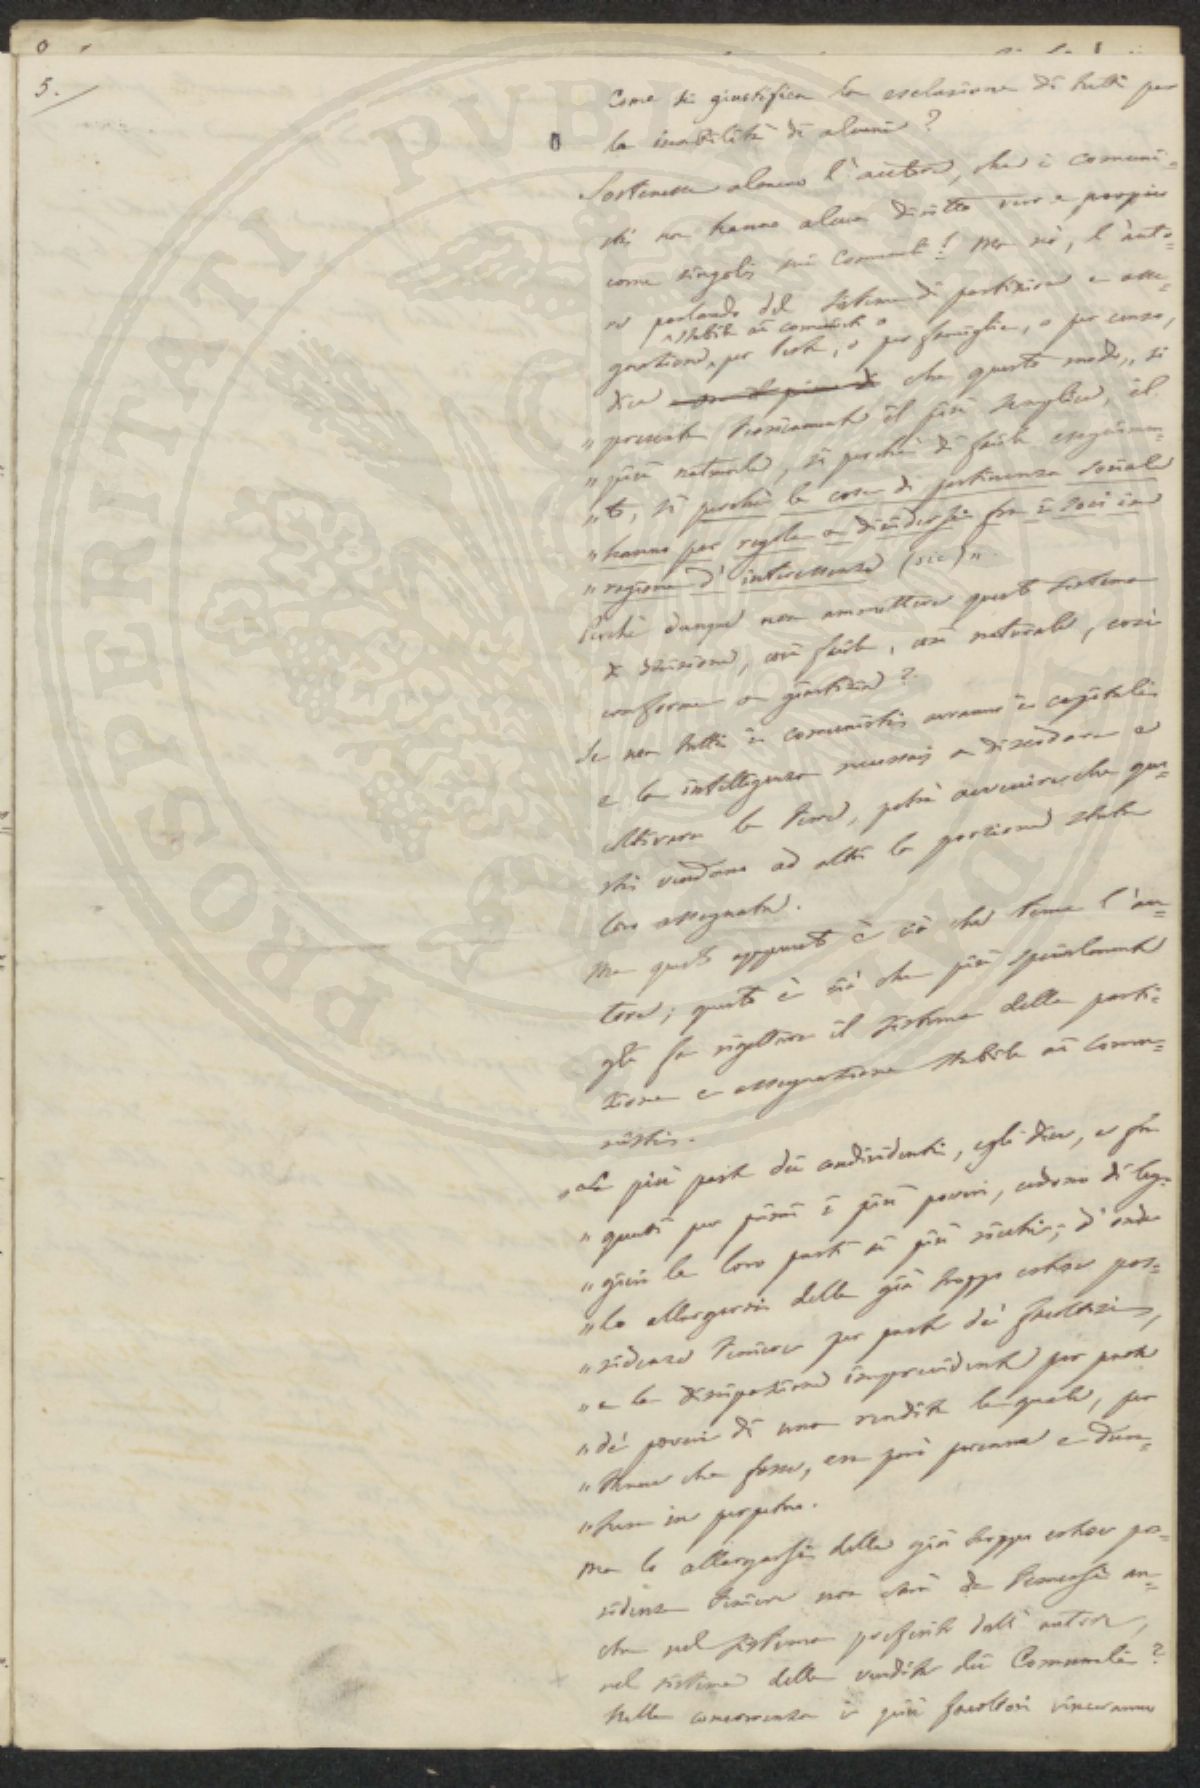 5.
Come si giustifica la esclusione di tutti per
la inabilità di alcuni?
Sostenesse almeno l'autore, che i comuni=
sti non hanno alcun diritto vero e proprio
come singoli sui Comunali! Ma nò, l'auto=
re parlando del sistema di partizione e asse=
stabile ai comunisti o
gnazione, per testa, o per famiglia, o per censo,
dice che questo modo „ si
„ presenta teoricamente il più semplice, il
„ più naturale, sì perchè di facile eseguimen=
„ to, sì perchè le cose di pertinenza sociale
„ hanno per regola a dividersi fra i soci in
„ ragione d'interessenza (sic) „.
Perchè dunque non ammettere questo sistema
di divisione, così facile, così naturale, così
conforme a giustizia?
Se non tutti i comunisti avranno i capitali
e la intelligenza necessaij a dissodare e
coltivare la terra, potrà avvenire che que=
sti vendano ad altri la porzione stata
loro assegnata.
Ma questo appunto è ciò che teme l'au=
tore; questo è ciò che più specialmente
gli fa rigettare il sistema della parti=
zione e assegnazione stabile ai comu=
nisti.
„ La più parte dei condividenti, egli dice, e fra
„ questi per primi i più poveri, cedono di leg=
„ gieri le loro parti ai più ricchi; d'onde
„ lo allargarsi della già troppo estesa pos=
„ sidenza terriera per parte de' facoltosi,
„ e la dissipazione imprevidente per parte
„ de' poveri di una rendita la quale, per
„ tenue che fosse, era però perenne e dura=
„ tura in perpetuo.
Ma lo allargarsi della già troppo estesa pos=
sidenza terriera non sarà da temersi an=
che nel sistema preferito dall'autore,
nel sistema della vendita dei Comunali?
Nella concorrenza i più facoltosi vinceranno